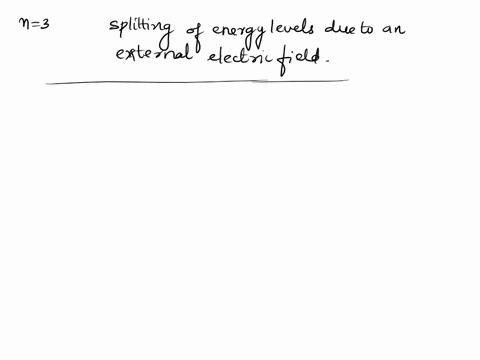 n=3 splitting of energy levels due to an
external electric field.